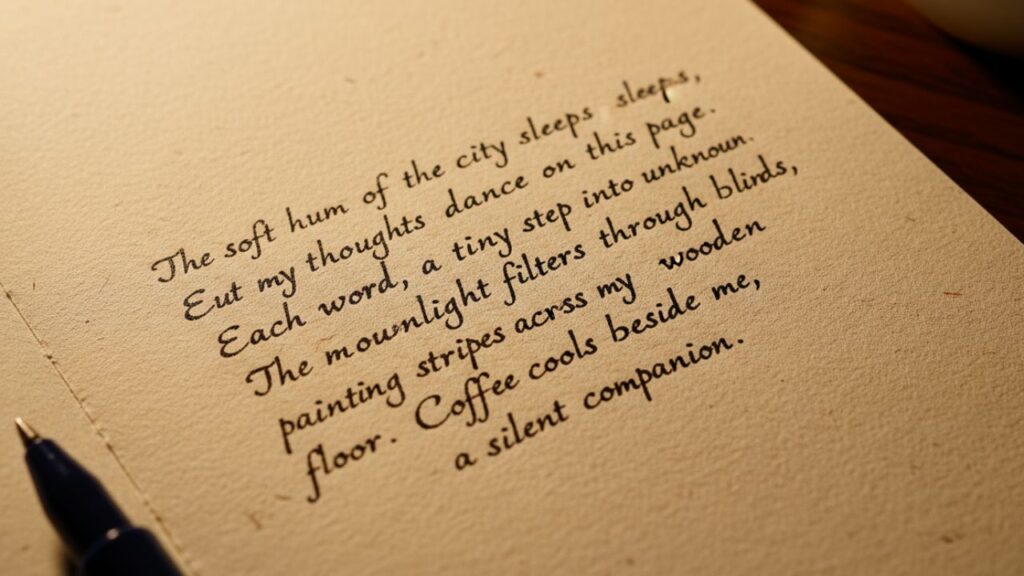 The soft hum of the city sleeps sleeps,
Eut my thoughts dance on this page.
Each word, a tiny step into unknoun.
The mounlight filters through blinds,
painting stripes acrss my wooden
floor. Coffee cools beside me,
a silent companion.